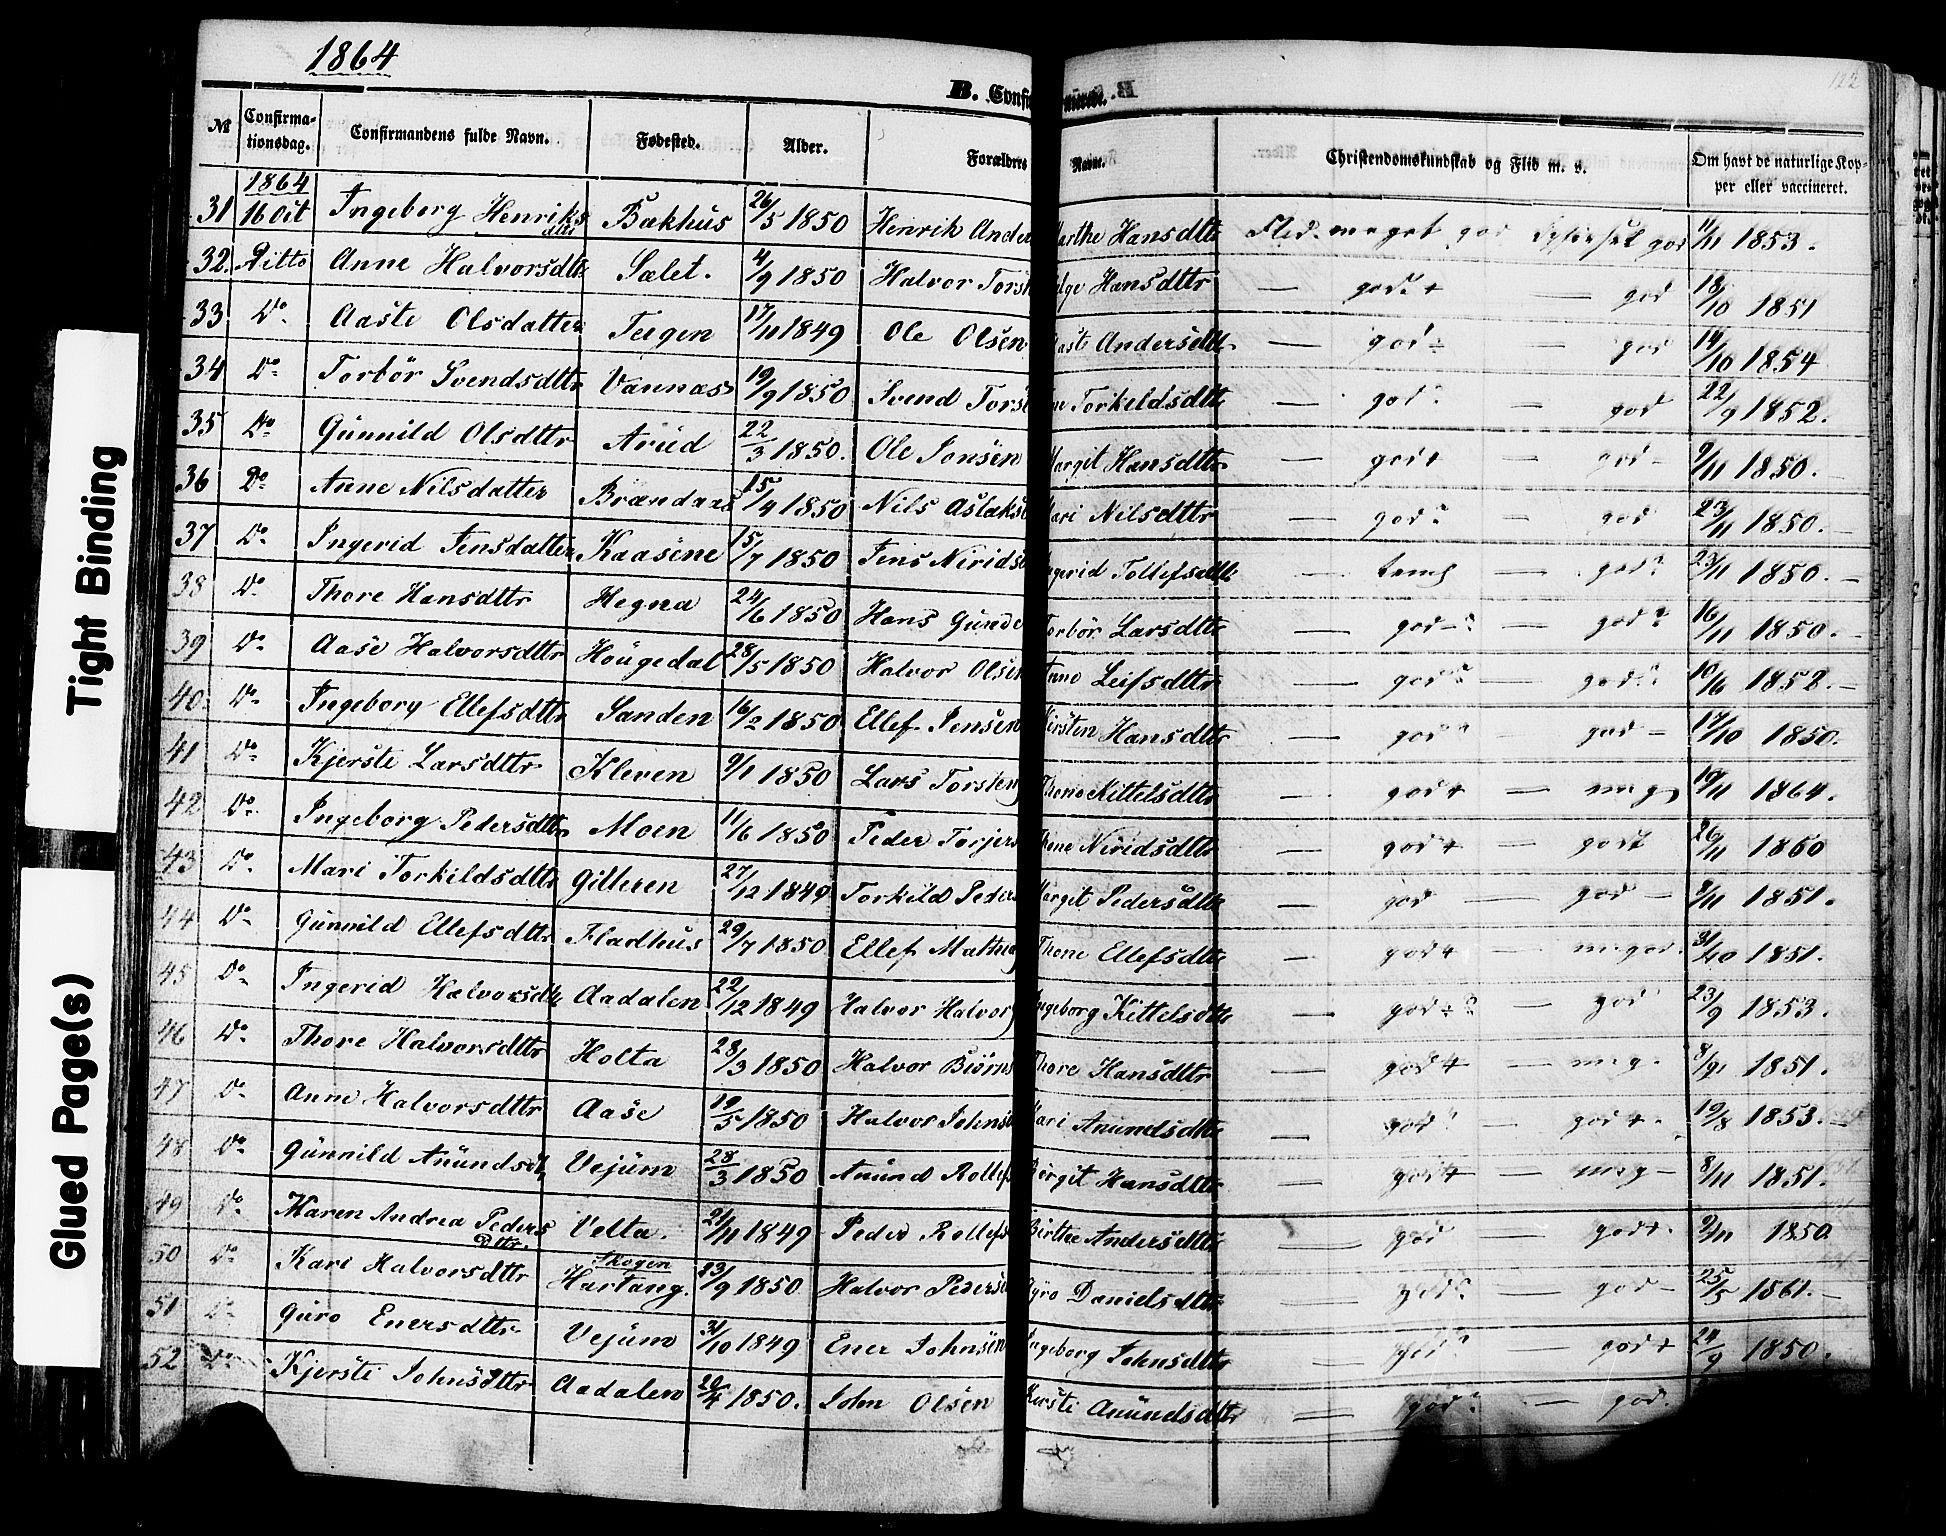 1864
B. Confirmerede.
122
№ Confirmationsdag. Confirmandens fulde Navn. Fødested. Alder. Forældres Navn. Christendomskundskab og Flid m. v. Om havt de naturlige Kopper eller vaccineret.
1864
31 16 Oct Ingeborg Henriksdtr Bakhus 26/5 1850 Henrik Ander Marthe Hansdttr Flid meget god god 11/11 1853.
32. Ditto Anne Halvorsdttr Sælet. 4/9 1850 Halvor Torst Hansdttr — god + — god 18/10 1851
33 Do. Aaste Olsdatter Teigen 17/11 1849 Ole Olsen Aaste Andersdttr — god ÷ — god 14/10 1854
34 Do Torbør Svendsdttr Vaunæs 19/9 1850 Svend Torst ne Torkeldsdttr — god — god 22/9 1852.
35 Do Gunnild Olsdttr Aarud 22/3 1850. Ole Jonsen Margit Hansdttr — god + — god 9/11 1850.
36 Do Anne Nilsdatter Brændaas 15/4 1850 Nils Aslaks Mari Nilsdttr — god ? — god 23/11 1850.
37 Do Ingerid Jensdatter Kaasene 15/7 1850 Jens Niridse Ingerid Tollefsdttr — temg — god ? 23/11 1850. —
38 Do Thore Hansdttr Hegna 24/6 1850 Hans Gunde Torbør Larsdttr — god — ? — god ? 16/11 1850. —
39 Do Aase Halvorsdttr Hougedal 28/5 1850 Halvor Olsen Anne Leifsdttr — god ? — god ? 10/6 1852. —
40 Do Ingeborg Ellefsdttr Sanden 16/2 1850 Ellef Jensen Kirsten Hansdttr — god — god — 17/10 1850.
41 Do Kjersti Larsdttr Kleven 9/1 1850 Lars Torsten Thone Kittelsdttr — god + — m g 19/11 1864.
42 Do. Ingeborg Pedersdttr Moen 11/6 1850 Peder Torjers Thone Niridsdttr — god + — godt 26/11 1860
43 Do Mari Torkildsdttr Gilteren 27/12 1849 Torkild Peders Margit Pedersdttr — god — god — 9/11 1851.
44 Do Gunnild Ellefsdttr Fladhus 29/7 1850 Ellef Mathi Thone Ellefsdttr — god + — m god. 31/10 1851.
45 Do Ingerid Halvorsdttr Aadalen 22/12 1849 Halvor Halvors Ingeborg Kittelsdttr — god ÷ ? — god 23/9 1853.
46 Do Thore Halvorsdttr Holta 28/3 1850 Halvor Biørns Thore Hansdttr — god + — m g. 8/9 1851.
47 Do Anne Halvorsdttr Aase 19/5 1850 Halvor Johnse Mari Anundsdttr — god — god +. 19/8 1853.
48 Do Gunnild Anundsdt Vejum 28/3 1850 Anund Rollefs Birgit Hansdttr — god + — m g — 8/11 1851.
49 Do Maren Andrea Peders Dttr. Velta. 21/11 1849 Peder Rollefs Birthe Andersdttr — god — god +. 9/11 1850
50 Do Kari Halvorsdttr Skogen Hartang. 23/9 1850 Halvor Peders Gyro Danielsdttr — god ? — god — 25/5 1861. —
51 Do Guro Enersdttr Vejum 31/10 1849 Ener Johnsen Ingeborg Johnsdttr — god ? — god + 24/9 1850.
52 Do Kjersti Johnsdttr Aadalen 20/4 1850. John Olsen Kersti Anundsdttr — god ? — god.
Tight Binding
Glued Page(s)